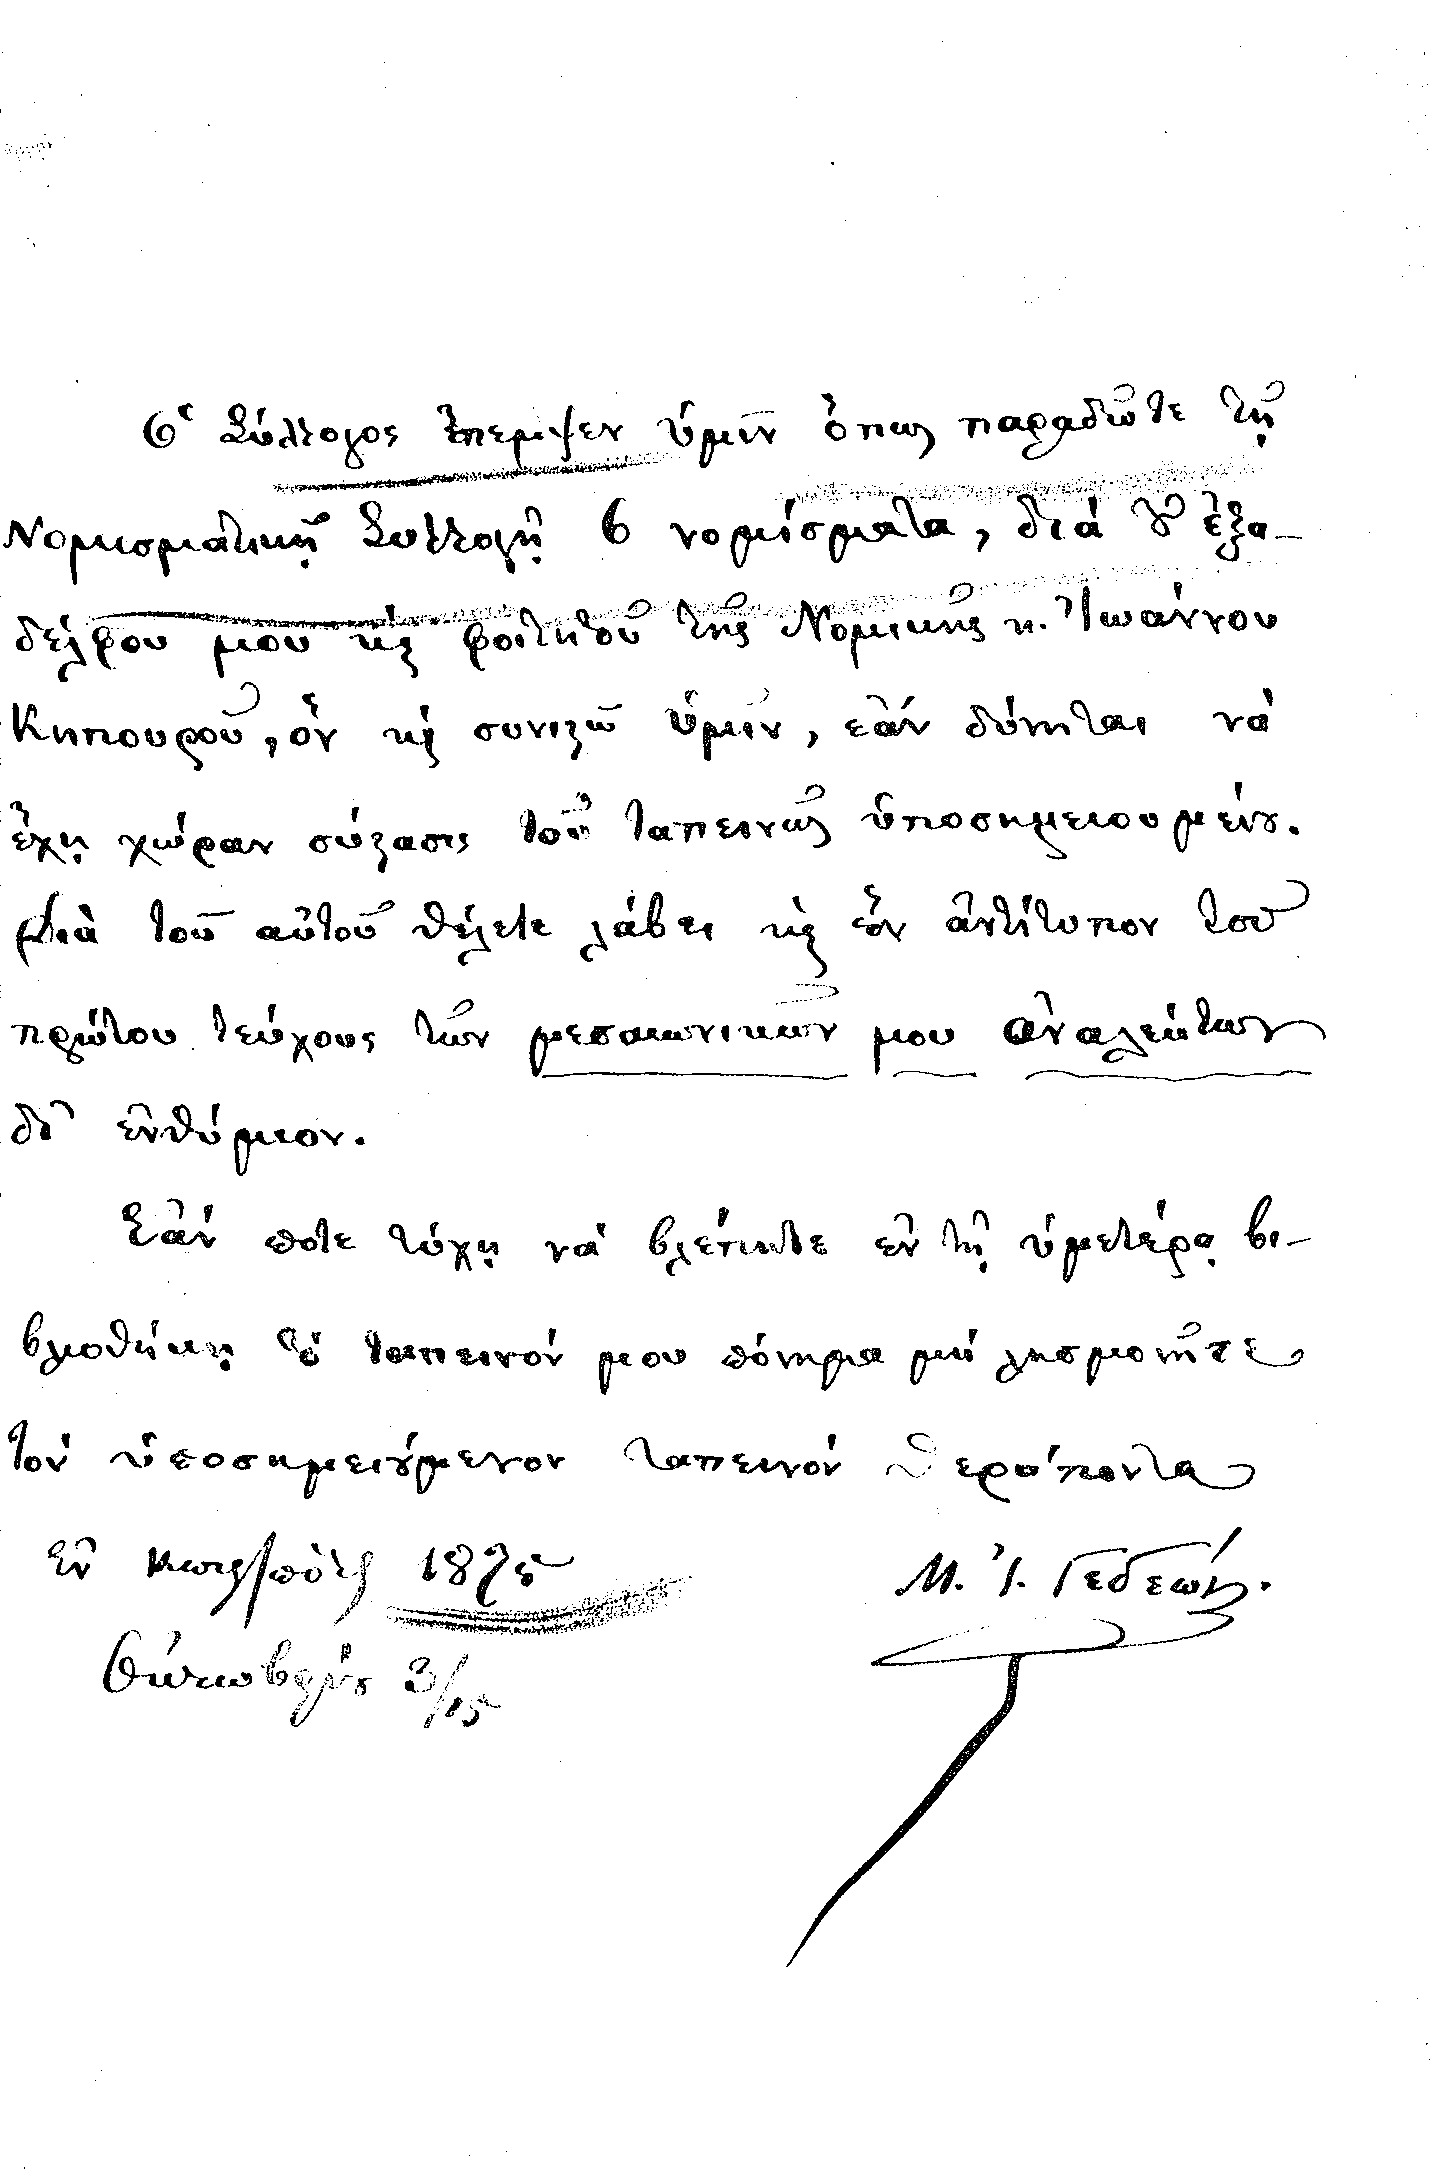 Ὁ Σύλλογος ἔπεμψεν ὑμῖν ὅπως παραδῶτε τῇ
Νομισματικῇ Συλλογῇ 6 νομίσματα, διὰ τοῦ ἐξα-
δέλφου μου καὶ φοιτητοῦ τῆς Νομικῆς κ. Ἰωάννου
Κηπουροῦ, ὃν καὶ συνιστῶ ὑμῖν, ἐὰν δύνηται νὰ
ἔχῃ χώραν σύστασις τοῦ ταπεινῶς ὑποσημειουμένου.
Διὰ τοῦ αὐτοῦ θέλετε λάβει καὶ ἓν ἀντίτυπον τοῦ
πρώτου τεύχους τῶν μεσαιωνικῶν μου ἀναλέκτων
δι' ἐνθύμιον.
Ἐάν ποτε τύχῃ νὰ βλέπητε ἐν τῇ ὑμετέρᾳ βι-
βλιοθήκῃ τὸ ταπεινόν μου πόνημα μὴ λησμονῆτε
τὸν ὑποσημειούμενον ταπεινὸν θεράποντα
Ἐν Κωνσ/πόλει 1875
Μ. Ἰ. Γεδεών.
Ὀκτωβρίου 3/15